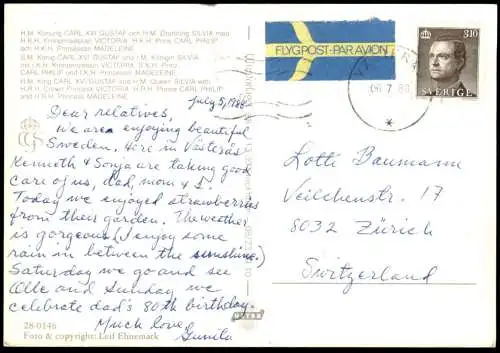 H.M. Konung CARL XVI GUSTAF och H.M. Drottning SILVIA med
H.K.H. Kronprinsessan VICTORIA H.K.H. Prins CARL PHILIP
och H.K.H. Prinsessan MADELEINE.
S.M. König CARL XVI GUSTAF und I.M. Königin SILVIA
mit I.K.H. Kronprinzessin VICTORIA S.K.H. Prinz
CARL PHILIP und I.K.H. Prinzessin MADELEINE.
H.M. King CARL XVI GUSTAF and H.M. Queen SILVIA with
H.R.H. Crown Princess VICTORIA H.R.H. Prince CARL PHILIP
and H.R.H. Princess MADELEINE
FLYGPOST·PAR AVION
310
SVERIGE
July 5, 1988
Dear relatives,
We are enjoying beautiful
Sweden. Here in Västerås
Kenneth & Sonja are taking good
care of us, dad, mom & I.
Today we enjoyed strawberries
from their garden. The weather
is gorgeous (I enjoy some
rain in between the sunshine.)
Saturday we go and see
Olle and Sunday we
celebrate dad's 80th birthday.
Much love,
Gunila
Lotti Baumann
Veilchenstr. 17
8032 Zürich
Switzerland
28-0146
Foto & copyright: Leif Ehnemark